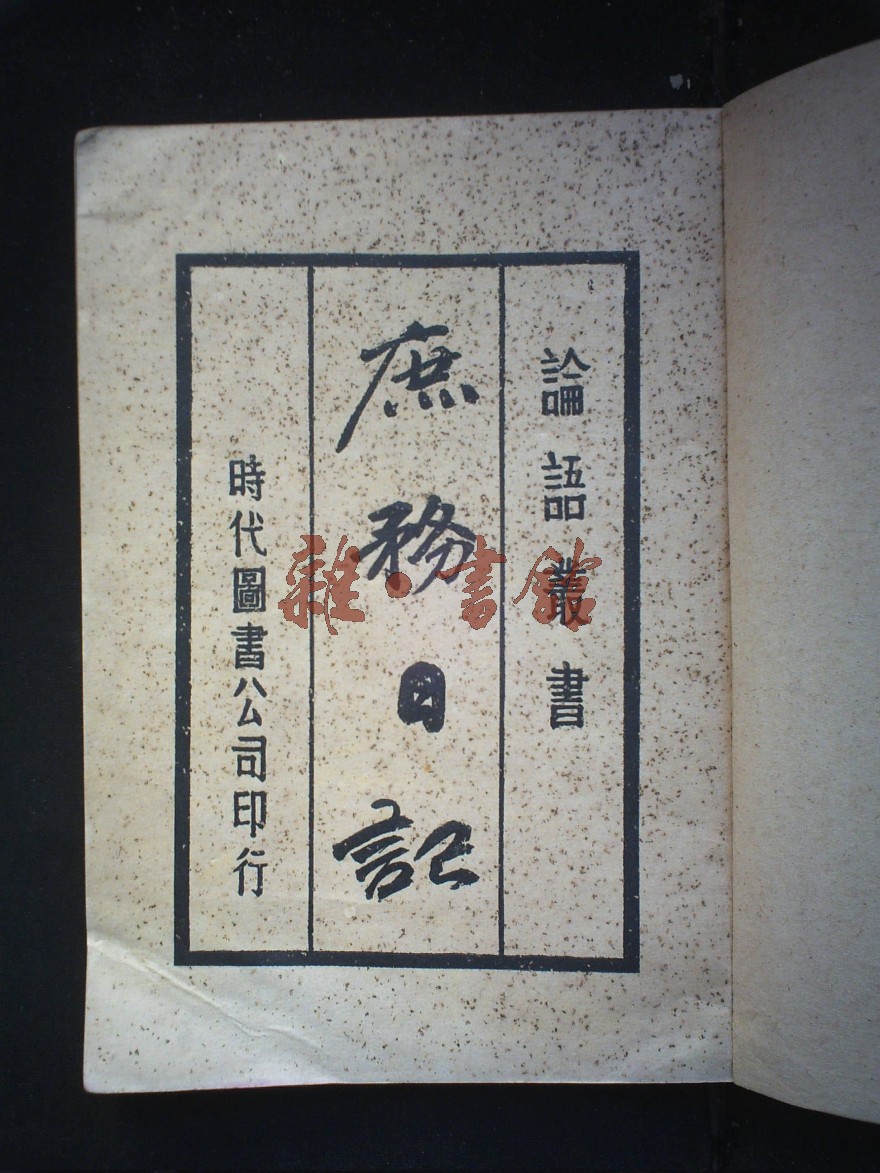 論語叢書
庶務日記
時代圖書公司印行
雜·書館